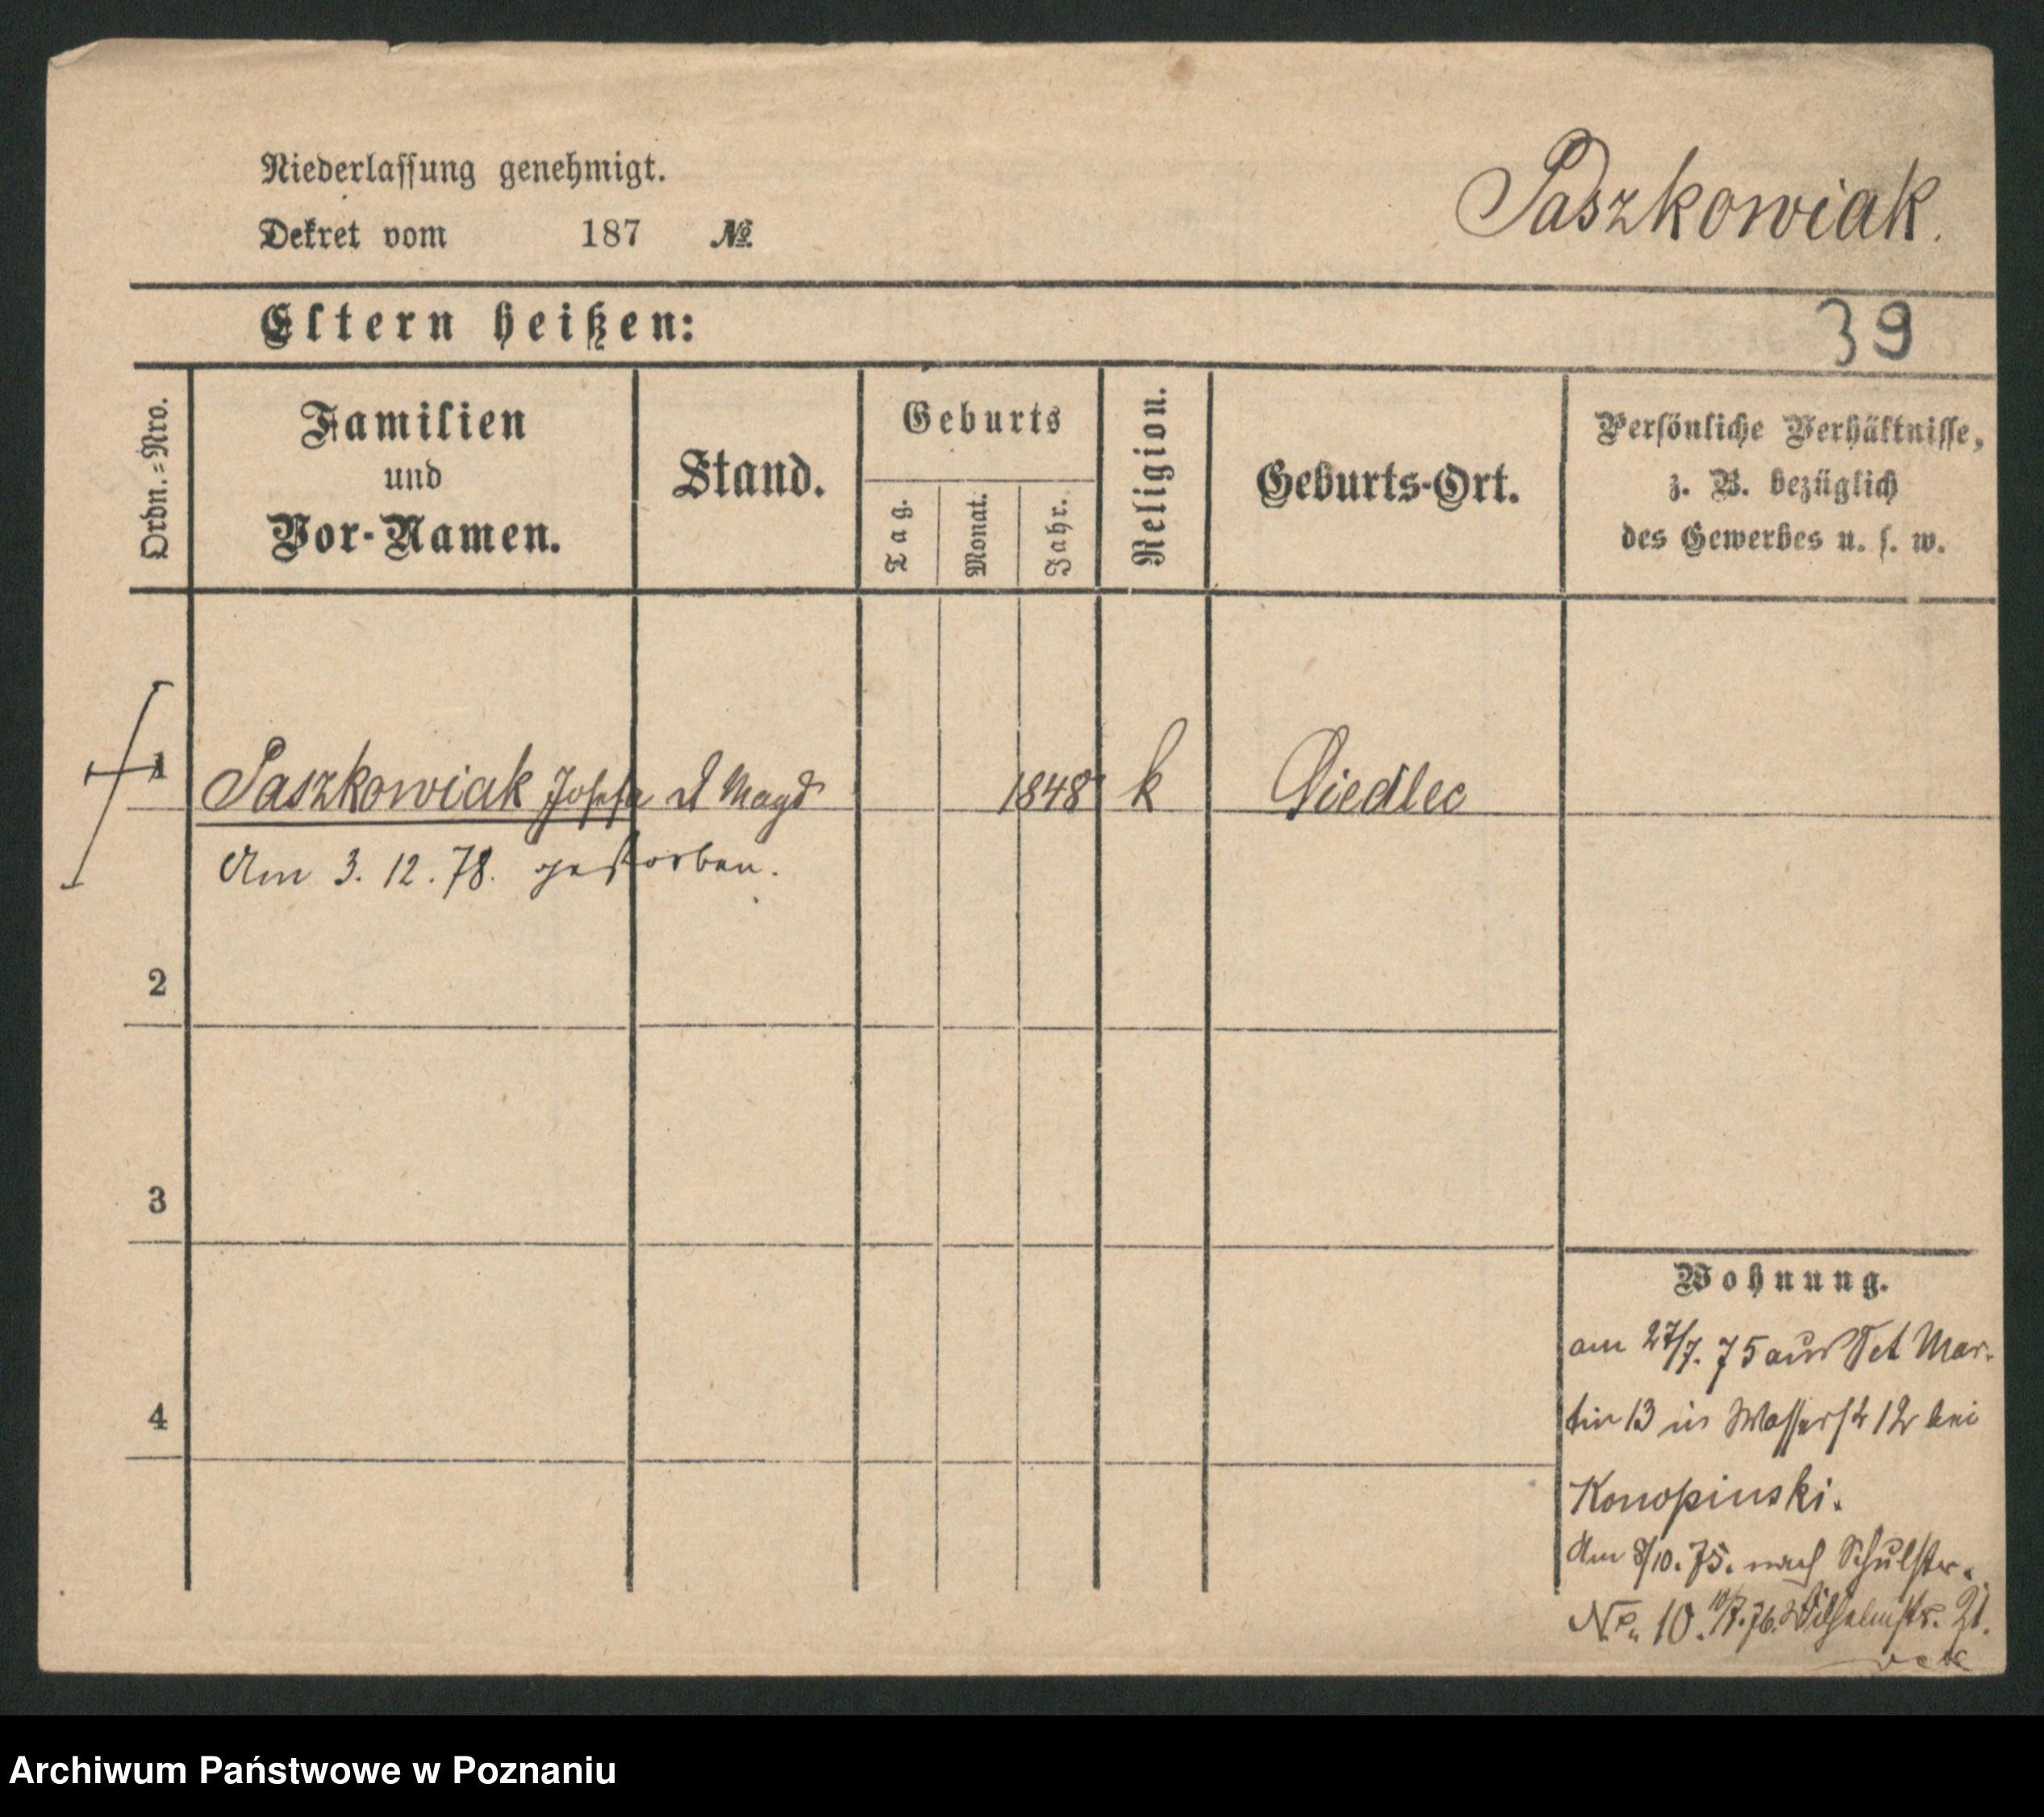 Niederlassung genehmigt.
Dekret vom 187 №
Paszkowiak.
Eltern heißen:
39
Ordn.=Nro.
Familien
und
Vor-Namen.
Stand.
Geburts
Tag.
Monat.
Jahr.
Religion.
Geburts-Ort.
Persönliche Verhältnisse,
z. B. bezüglich
des Gewerbes u. s. w.
1
Paszkowiak Josefa d Magd 1848 k Siedlec
Am 3. 12. 78. gestorben.
2
3
4
Wohnung.
am 27/7. 75 aus Sct Mar-
tin 13 in Wasserstr 12 bei
Konopinski.
Am 8/10. 75. nach Schulstr.
No. 10. 10/7. 76. Wilhelmstr. 21.
Archiwum Państwowe w Poznaniu